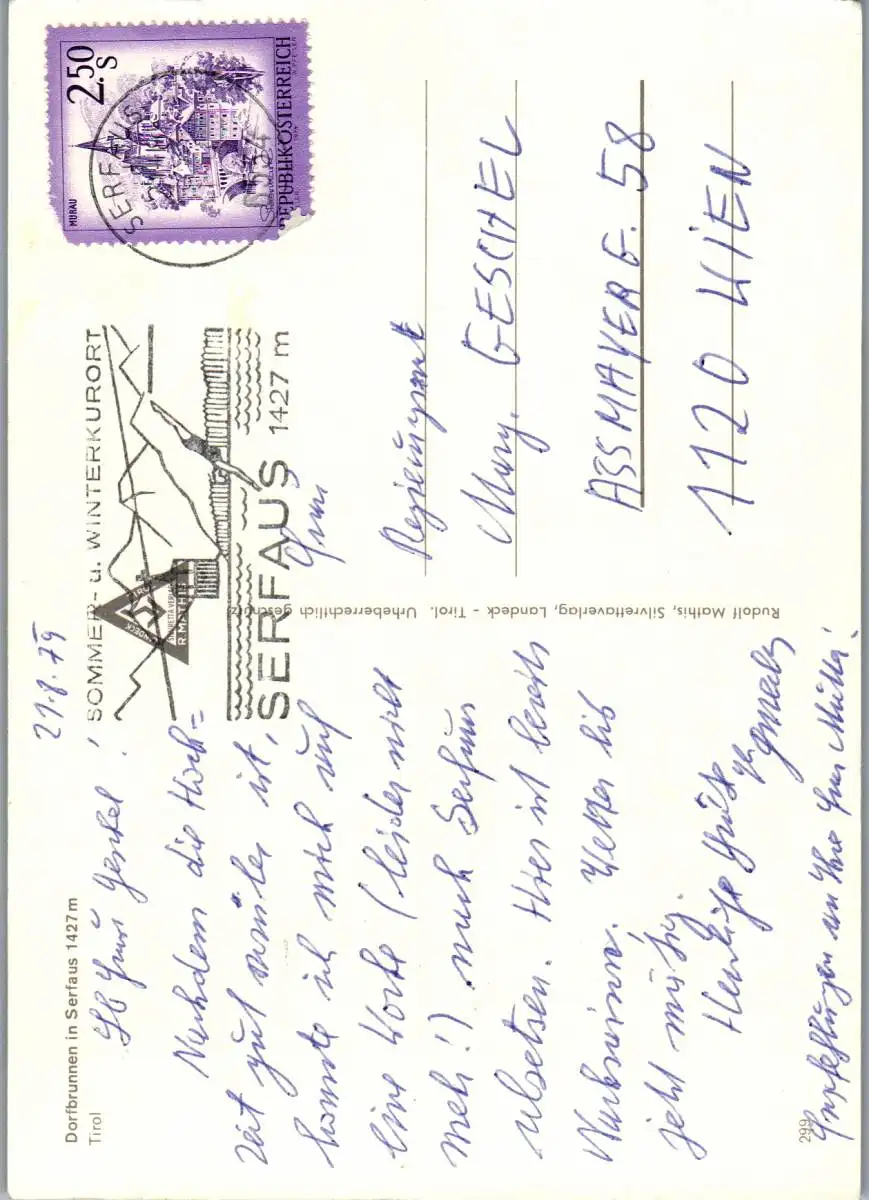 Dorfbrunnen in Serfaus 1427 m
Tirol
21.8.79
Lb Frau Geschel!
Nachdem die Hoch=
zeit gut vorüber ist,
konnte ich mich auf
eine Woche (leider nicht
mehr!) nach Serfaus
absetzen. Hier ist bereits
Nachsaison. Wetter bis
jetzt mäßig.
Herzliche Grüße
Empfehlungen an Ihre Frau Mutter!
299
Rudolf Mathis, Silvrettaverlag, Landeck - Tirol. Urheberrechtlich geschützt
SOMMER- u. WINTERKURORT
SERFAUS 1427 m
LANDECK
TIROL
SILVRETTA VERLAG
R. MATHIS
2.50 S
MURAU
REPUBLIK ÖSTERREICH
SERFAUS
6534
Frau
Regierungsrat
Marg. GESCHEL
ASSMAYERG. 58
1120 WIEN